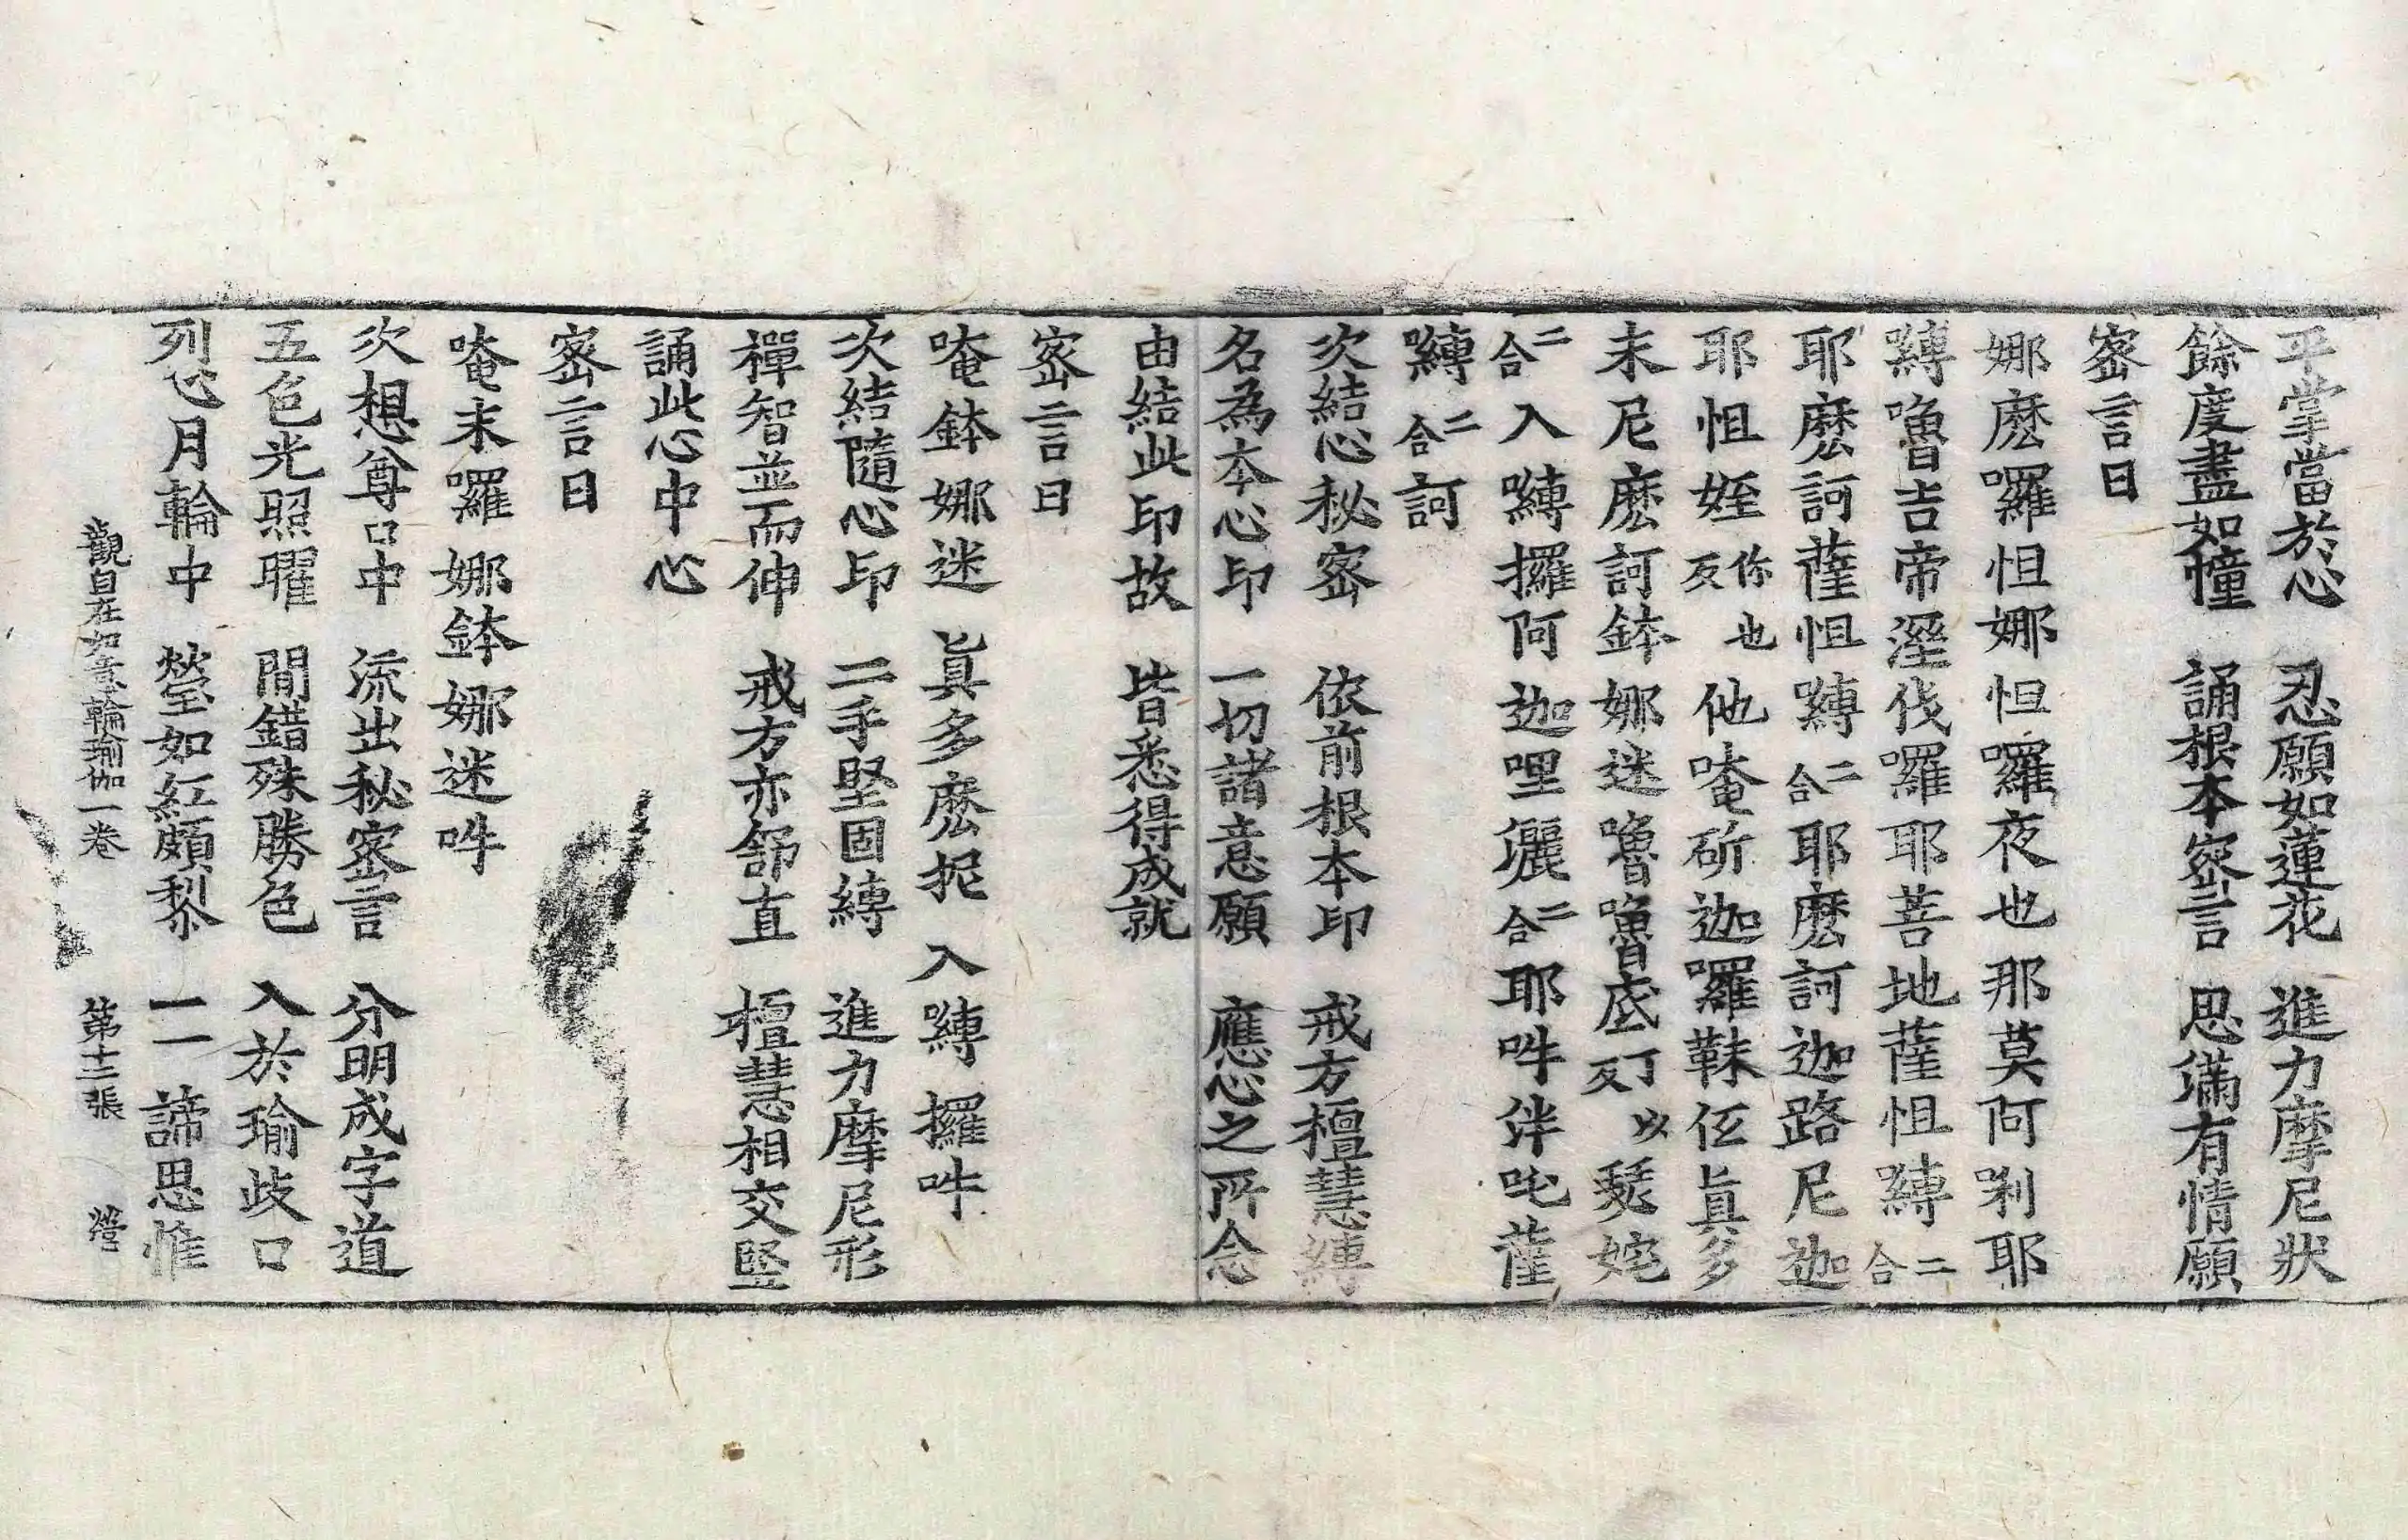 平掌當於心　忍願如蓮花　進力摩尼狀
餘度盡如幢　誦根本密言　思滿有情願
密言曰
娜麽囉怛娜怛囉夜也那莫阿唎耶
嚩嚕吉帝溼伐囉耶菩地薩怛嚩二合
耶麽訶薩怛嚩二合耶麽訶迦路尼迦
耶怛姪你也反他唵斫迦囉靺𠆙眞多
末尼麽訶鉢娜迷嚕嚕底丁以反瑟姹
二合入嚩攞阿迦哩灑二合耶吽泮吒薩
嚩二合訶
次結心秘密　依前根本印　戒方檀慧縛
名為本心印　一切諸意願　應心之所念
由結此印故　皆悉得成就
密言曰
唵鉢娜迷　眞多麽抳　入嚩攞吽
次結隨心印　二手堅固縛　進力摩尼形
禪智並而伸　戒方亦舒直　檀慧相交竪
誦此心中心
密言曰
唵末囉娜鉢娜迷吽
次想尊口中　流出秘密言　分明成字道
五色光照曜　間錯殊勝色　入於瑜歧口
列心月輪中　瑩如紅頗黎　一一諦思惟
觀自在如意輪瑜伽一卷　第十二張